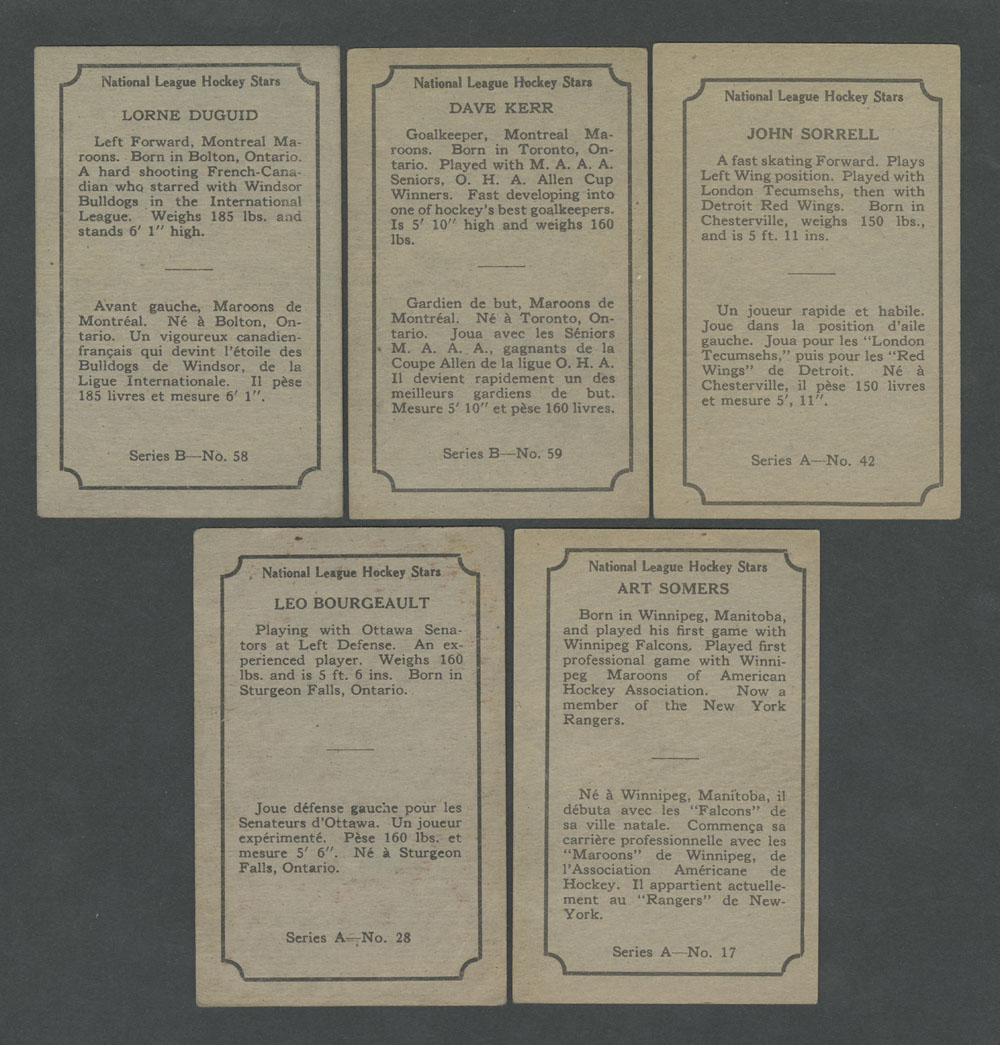 National League Hockey Stars
LORNE DUGUID
Left Forward, Montreal Ma-
roons. Born in Bolton, Ontario.
A hard shooting French-Cana-
dian who starred with Windsor
Bulldogs in the International
League. Weighs 185 lbs. and
stands 6′ 1″ high.
Avant gauche, Maroons de
Montréal. Né à Bolton, On-
tario. Un vigoureux canadien-
français qui devint l'étoile des
Bulldogs de Windsor, de la
Ligue Internationale. Il pèse
185 livres et mesure 6′ 1″.
Series B—No. 58
National League Hockey Stars
DAVE KERR
Goalkeeper, Montreal Ma-
roons. Born in Toronto, On-
tario. Played with M. A. A. A.
Seniors, O. H. A. Allen Cup
Winners. Fast developing into
one of hockey's best goalkeepers.
Is 5′ 10″ high and weighs 160
lbs.
Gardien de but, Maroons de
Montréal. Né à Toronto, On-
tario. Joua avec les Séniors
M. A. A. A., gagnants de la
Coupe Allen de la ligue O. H. A.
Il devient rapidement un des
meilleurs gardiens de but.
Mesure 5′ 10″ et pèse 160 livres.
Series B—No. 59
National League Hockey Stars
JOHN SORRELL
A fast skating Forward. Plays
Left Wing position. Played with
London Tecumsehs, then with
Detroit Red Wings. Born in
Chesterville, weighs 150 lbs.,
and is 5 ft. 11 ins.
Un joueur rapide et habile.
Joue dans la position d'aile
gauche. Joua pour les "London
Tecumsehs," puis pour les "Red
Wings" de Detroit. Né à
Chesterville, il pèse 150 livres
et mesure 5′, 11″.
Series A—No. 42
National League Hockey Stars
LEO BOURGEAULT
Playing with Ottawa Sena-
tors at Left Defense. An ex-
perienced player. Weighs 160
lbs. and is 5 ft. 6 ins. Born in
Sturgeon Falls, Ontario.
Joue défense gauche pour les
Senateurs d'Ottawa. Un joueur
expérimenté. Pèse 160 lbs. et
mesure 5′ 6″. Né à Sturgeon
Falls, Ontario.
Series A—No. 28
National League Hockey Stars
ART SOMERS
Born in Winnipeg, Manitoba,
and played his first game with
Winnipeg Falcons. Played first
professional game with Winni-
peg Maroons of American
Hockey Association. Now a
member of the New York
Rangers.
Né à Winnipeg, Manitoba, il
débuta avec les "Falcons" de
sa ville natale. Commença sa
carrière professionnelle avec les
"Maroons" de Winnipeg, de
l'Association Américane de
Hockey. Il appartient actuelle-
ment au "Rangers" de New-
York.
Series A—No. 17